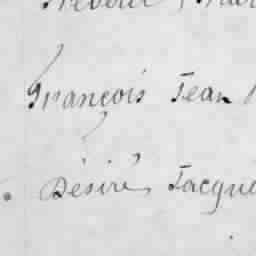 François Jean
Désiré, Jacque